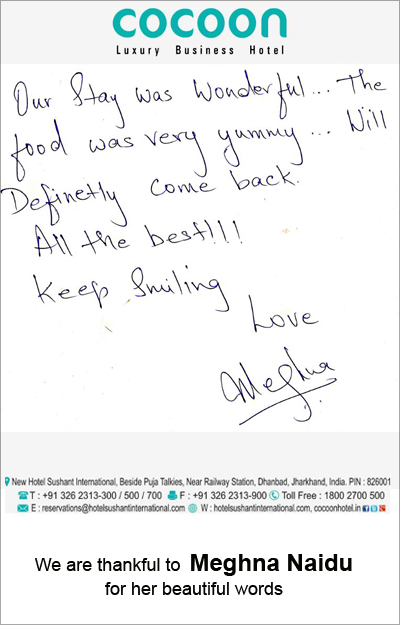 cocoon
Luxury Business Hotel
Our Stay was Wonderful... The
food was very yummy... Will
Definetly come back.
All the best!!!
Keep Smiling
Love
Meghna
New Hotel Sushant International, Beside Puja Talkies, Near Railway Station, Dhanbad, Jharkhand, India. PIN : 826001
T : +91 326 2313-300 / 500 / 700 F : +91 326 2313-900 Toll Free : 1800 2700 500
E : reservations@hotelsushantinternational.com W : hotelsushantinternational.com, cocoonhotel.in
We are thankful to Meghna Naidu
for her beautiful words